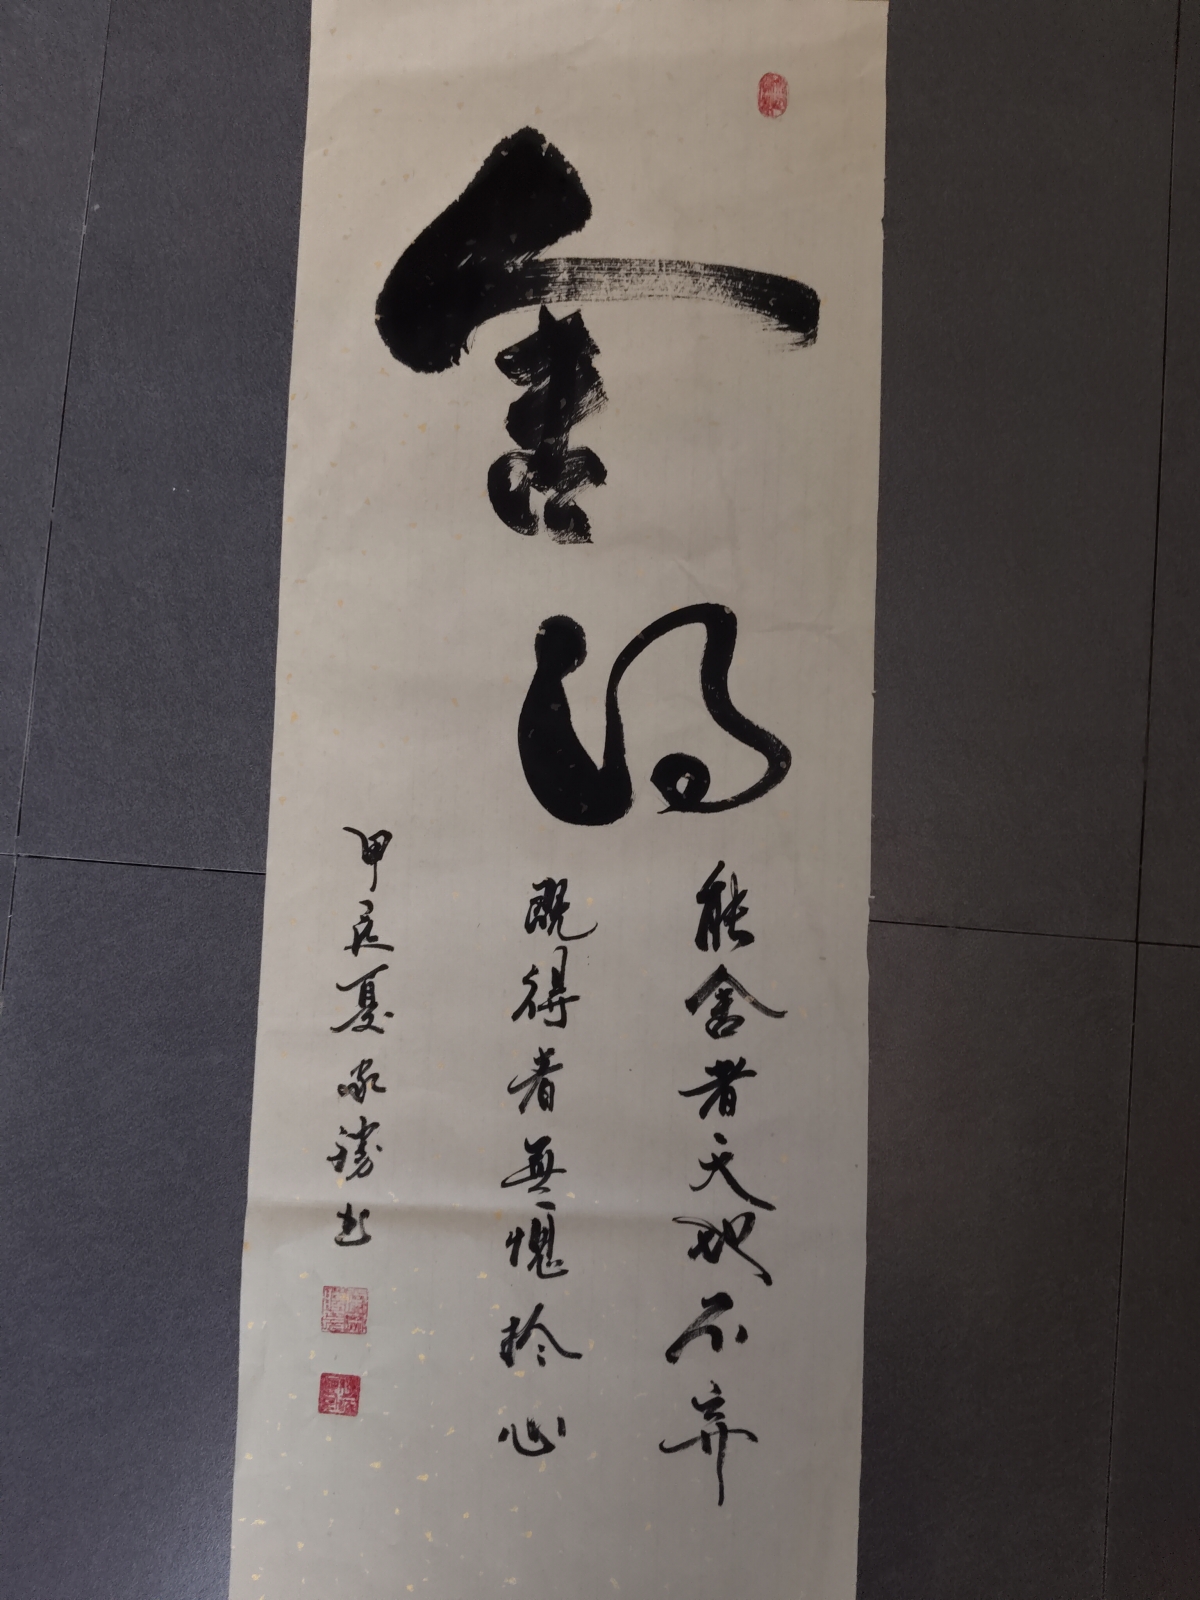 舍得
能舍者天地不弃
既得者無愧於心
甲辰夏家勝书